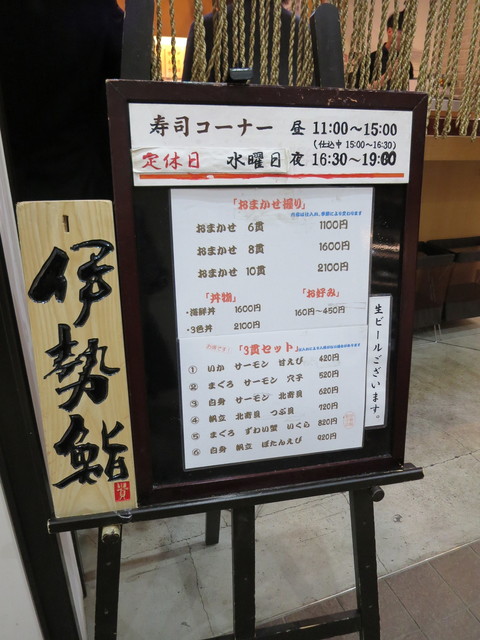 寿司コーナー 昼 11:00～15:00
(仕込中 15:00～16:30)
定休日 水曜日 夜 16:30～19:00
「おまかせ握り」
おまかせ 6貫 1100円
おまかせ 8貫 1600円
おまかせ 10貫 2100円
「丼物」 「お好み」
・海鮮丼 1600円 160円～450円
・3色丼 2100円
「3貫セット」
① いか サーモン 甘えび 420円
② まぐろ サーモン 穴子 520円
③ 白身 サーモン 北寄貝 620円
④ 帆立 北寄貝 つぶ貝 720円
⑤ まぐろ ずわい蟹 いくら 820円
⑥ 白身 帆立 ぼたんえび 920円
生ビールございます。
伊勢鮨